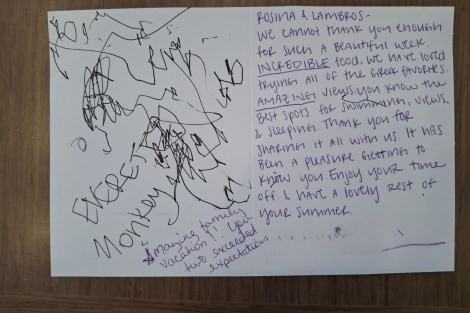 ROSINA & LAMBROS-
WE CANNOT THANK YOU ENOUGH
FOR SUCH A BEAUTIFUL WEEK.
INCREDIBLE FOOD, WE HAVE LOVED
TRYING ALL OF THE GREEK FAVORITES.
AMAZING VIEWS, YOU KNOW THE
BEST SPOTS FOR SWIMMING, VIEWS,
& SLEEPING. THANK YOU FOR
SHARING IT ALL WITH US. IT HAS
BEEN A PLEASURE GETTING TO
KNOW YOU ENJOY YOUR TIME
OFF & HAVE A LOVELY REST OF
YOUR SUMMER.
Monkey
Amazing family
vacation!! You
two exceeded
expectations